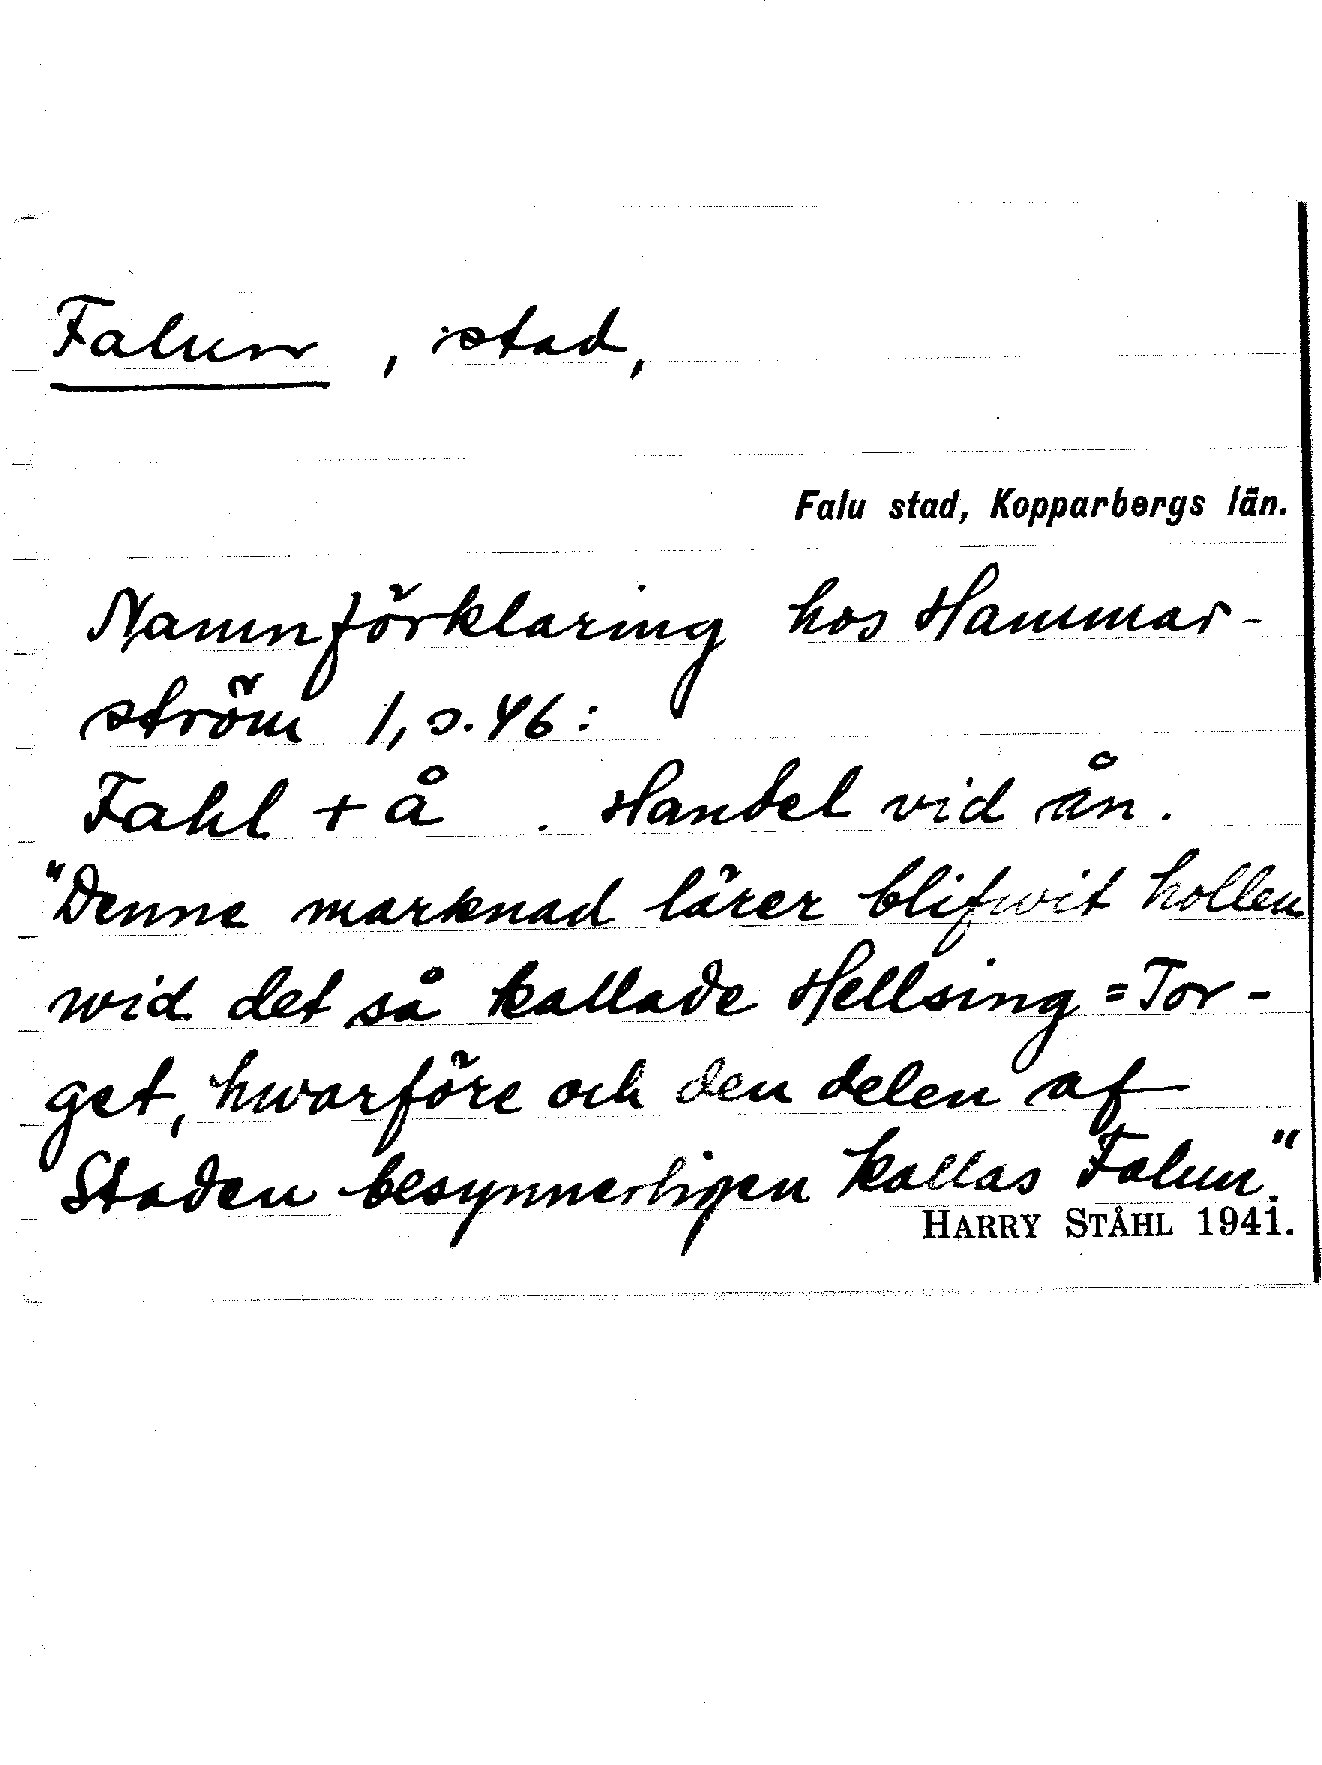 Falun, stad,
Falu stad, Kopparbergs län.
Namnförklaring hos Hammar-
ström 1, s. 46:
Fahl + å. Handel vid ån.
"Denne marknad lärer blifwit hollen
wid det så kallade Hellsing=Tor-
get, hwarföre och den delen af
Staden besynnerligen kallas Falun."
HARRY STÅHL 1941.